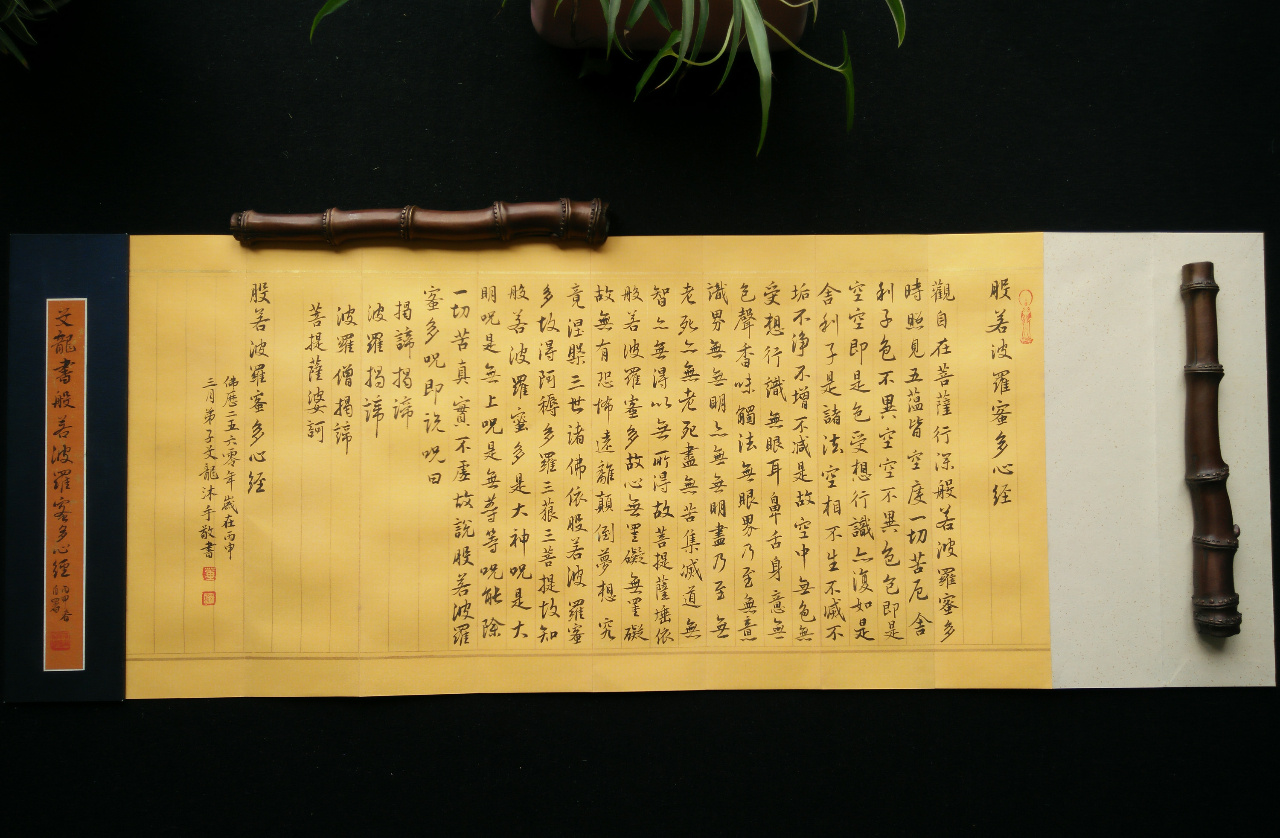 般若波羅蜜多心經
觀自在菩薩行深般若波羅蜜多
時照見五蘊皆空度一切苦厄舍
利子色不異空空不異色色即是
空空即是色受想行識亦復如是
舍利子是諸法空相不生不滅不
垢不淨不增不減是故空中無色無
受想行識無眼耳鼻舌身意無
色聲香味觸法無眼界乃至無意
識界無無明亦無無明盡乃至無
老死亦無老死盡無苦集滅道無
智亦無得以無所得故菩提薩埵依
般若波羅蜜多故心無罣礙無罣礙
故無有恐怖遠離顛倒夢想究
竟涅槃三世諸佛依般若波羅蜜
多故得阿耨多羅三藐三菩提故知
般若波羅蜜多是大神呪是大
明呪是無上呪是無等等呪能除
一切苦真實不虛故說般若波羅
蜜多呪即説呪曰
揭諦揭諦
波羅揭諦
波羅僧揭諦
菩提薩婆訶
般若波羅蜜多心經
佛曆二五六零年歲在丙申
三月弟子文龍沐手敬書
文龍書般若波羅蜜多心經
丙申春